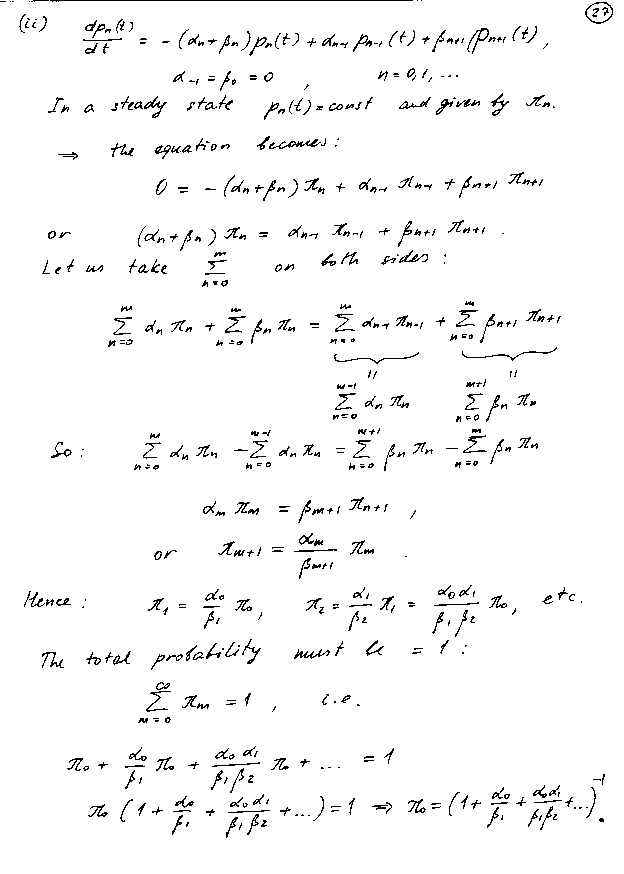 27
(ii) dpₙ(t)/dt = - (αₙ+βₙ)pₙ(t) + αₙ₋₁ pₙ₋₁(t) + βₙ₊₁ pₙ₊₁(t),
α₋₁ = β₀ = 0 , n = 0,1, ...
In a steady state pₙ(t)=const and given by πₙ.
⇒ the equation becomes:
0 = - (αₙ+βₙ) πₙ + αₙ₋₁ πₙ₋₁ + βₙ₊₁ πₙ₊₁
or (αₙ+βₙ) πₙ = αₙ₋₁ πₙ₋₁ + βₙ₊₁ πₙ₊₁ .
Let us take Σ_{n=0}^{m} on both sides :
Σ_{n=0}^{m} αₙ πₙ + Σ_{n=0}^{m} βₙ πₙ = Σ_{n=0}^{m} αₙ₋₁ πₙ₋₁ + Σ_{n=0}^{m} βₙ₊₁ πₙ₊₁
" "
Σ_{n=0}^{m-1} αₙ πₙ Σ_{n=0}^{m+1} βₙ πₙ
So : Σ_{n=0}^{m} αₙ πₙ - Σ_{n=0}^{m-1} αₙ πₙ = Σ_{n=0}^{m+1} βₙ πₙ - Σ_{n=0}^{m} βₙ πₙ
αₘ πₘ = βₘ₊₁ πₙ₊₁ ,
or πₘ₊₁ = αₘ/βₘ₊₁ πₘ .
Hence : π₁ = α₀/β₁ π₀, π₂ = α₁/β₂ π₁ = α₀α₁/β₁β₂ π₀, etc.
The total probability must be = 1 :
Σ_{m=0}^{∞} πₘ = 1 , i.e.
π₀ + α₀/β₁ π₀ + α₀α₁/β₁β₂ π₀ + ... = 1
π₀ (1 + α₀/β₁ + α₀α₁/β₁β₂ + ...) = 1 ⇒ π₀ = (1 + α₀/β₁ + α₀α₁/β₁β₂ + ...)⁻¹.